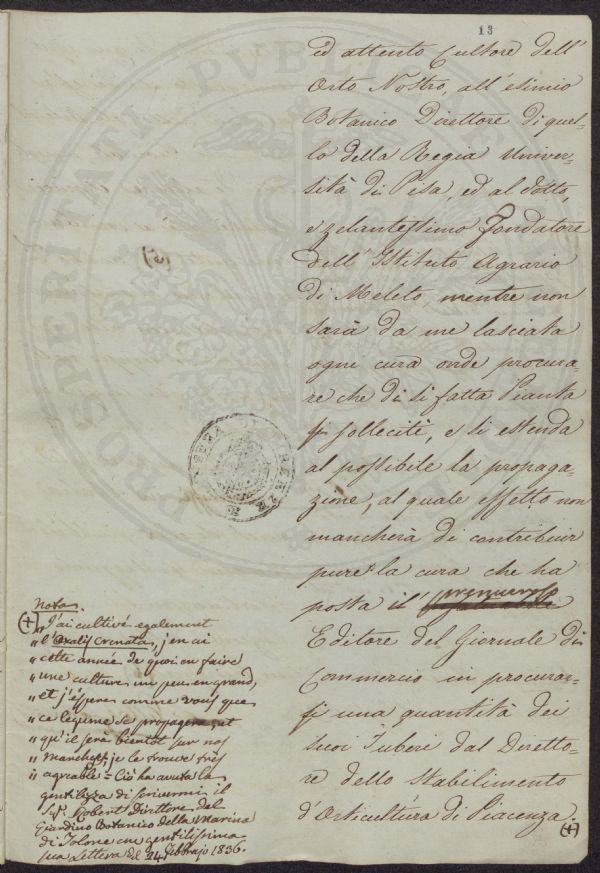 13
ed attento Cultore dell'
Orto Nostro, all'esimio
Botanico Direttore di quel-
lo della Regia Univer-
sità di Pisa, ed al dotto,
e zelantissimo Fondatore
dell'Istituto Agrario
di Meleto, mentre non
sarà da me lasciata
ogni cura onde procura-
re che di sì fatta Pianta
si solleciti, e si estenda
al possibile la propaga-
zione, al quale effetto non
mancherà di contribuir
pure la cura che ha
posta il
Editore del Giornale di
Commercio in procurar-
si una quantità dei
suoi Tuberi dal Diretto-
re dello Stabilimento
d'Orticultura di Piacenza.
(+)
Nota.
(+) "J'ai cultivé egalement
" l'Oxalis Crenata, j'en ai
" cette année de quoi en faire
" une culture un peu en grand,
" et j'éspere comme vous que
" ce legume se propagera, et
" qu'il serà bientôt sur nos
" marchés, je le trouve très
" agreable = Ciò ha avuta la
gentilezza di scrivermi il
Sig. Robert Direttore del
Giardino Botanico della Marina
di Tolone in gentilissima
sua Lettera del 24 Febbrajo 1836.
PROSPERITATI PUBLI